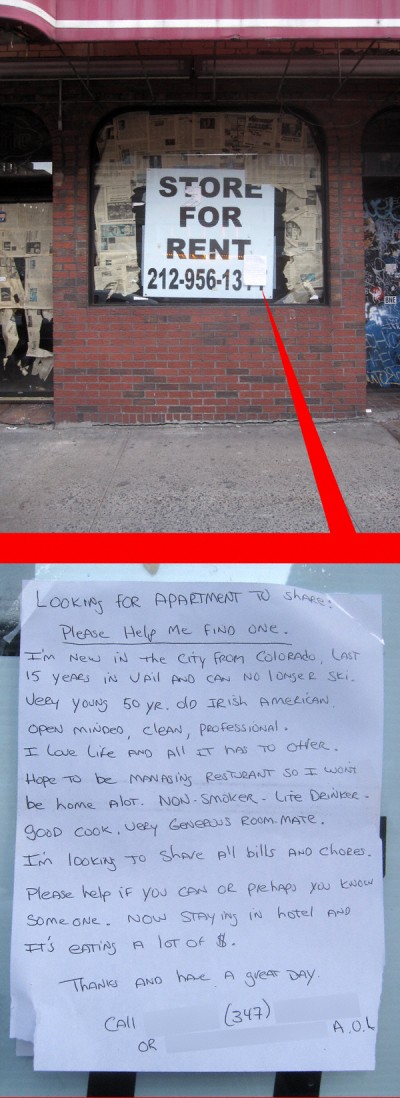 STORE
FOR
RENT
212-956-13
BNE
LOOKING FOR APARTMENT TO SHARE:
PLEASE HELP ME FIND ONE.
I'M NEW IN THE CITY FROM COLORADO, LAST
15 YEARS IN VAIL AND CAN NO LONGER SKI.
VERY YOUNG 50 YR. OLD IRISH AMERICAN,
OPEN MINDED, CLEAN, PROFESSIONAL.
I LOVE LIFE AND ALL IT HAS TO OFFER.
HOPE TO BE MANAGING RESTURANT SO I WONT
BE HOME ALOT. NON-SMOKER - LITE DRINKER -
GOOD COOK, VERY GENEROUS ROOM-MATE.
I'M LOOKING TO SHARE ALL BILLS AND CHORES.
PLEASE HELP IF YOU CAN OR PREHAPS YOU KNOW
SOMEONE. NOW STAYING IN HOTEL AND
IT'S EATING A LOT OF $.
THANKS AND HAVE A GREAT DAY.
CALL (347)
OR A.O.L